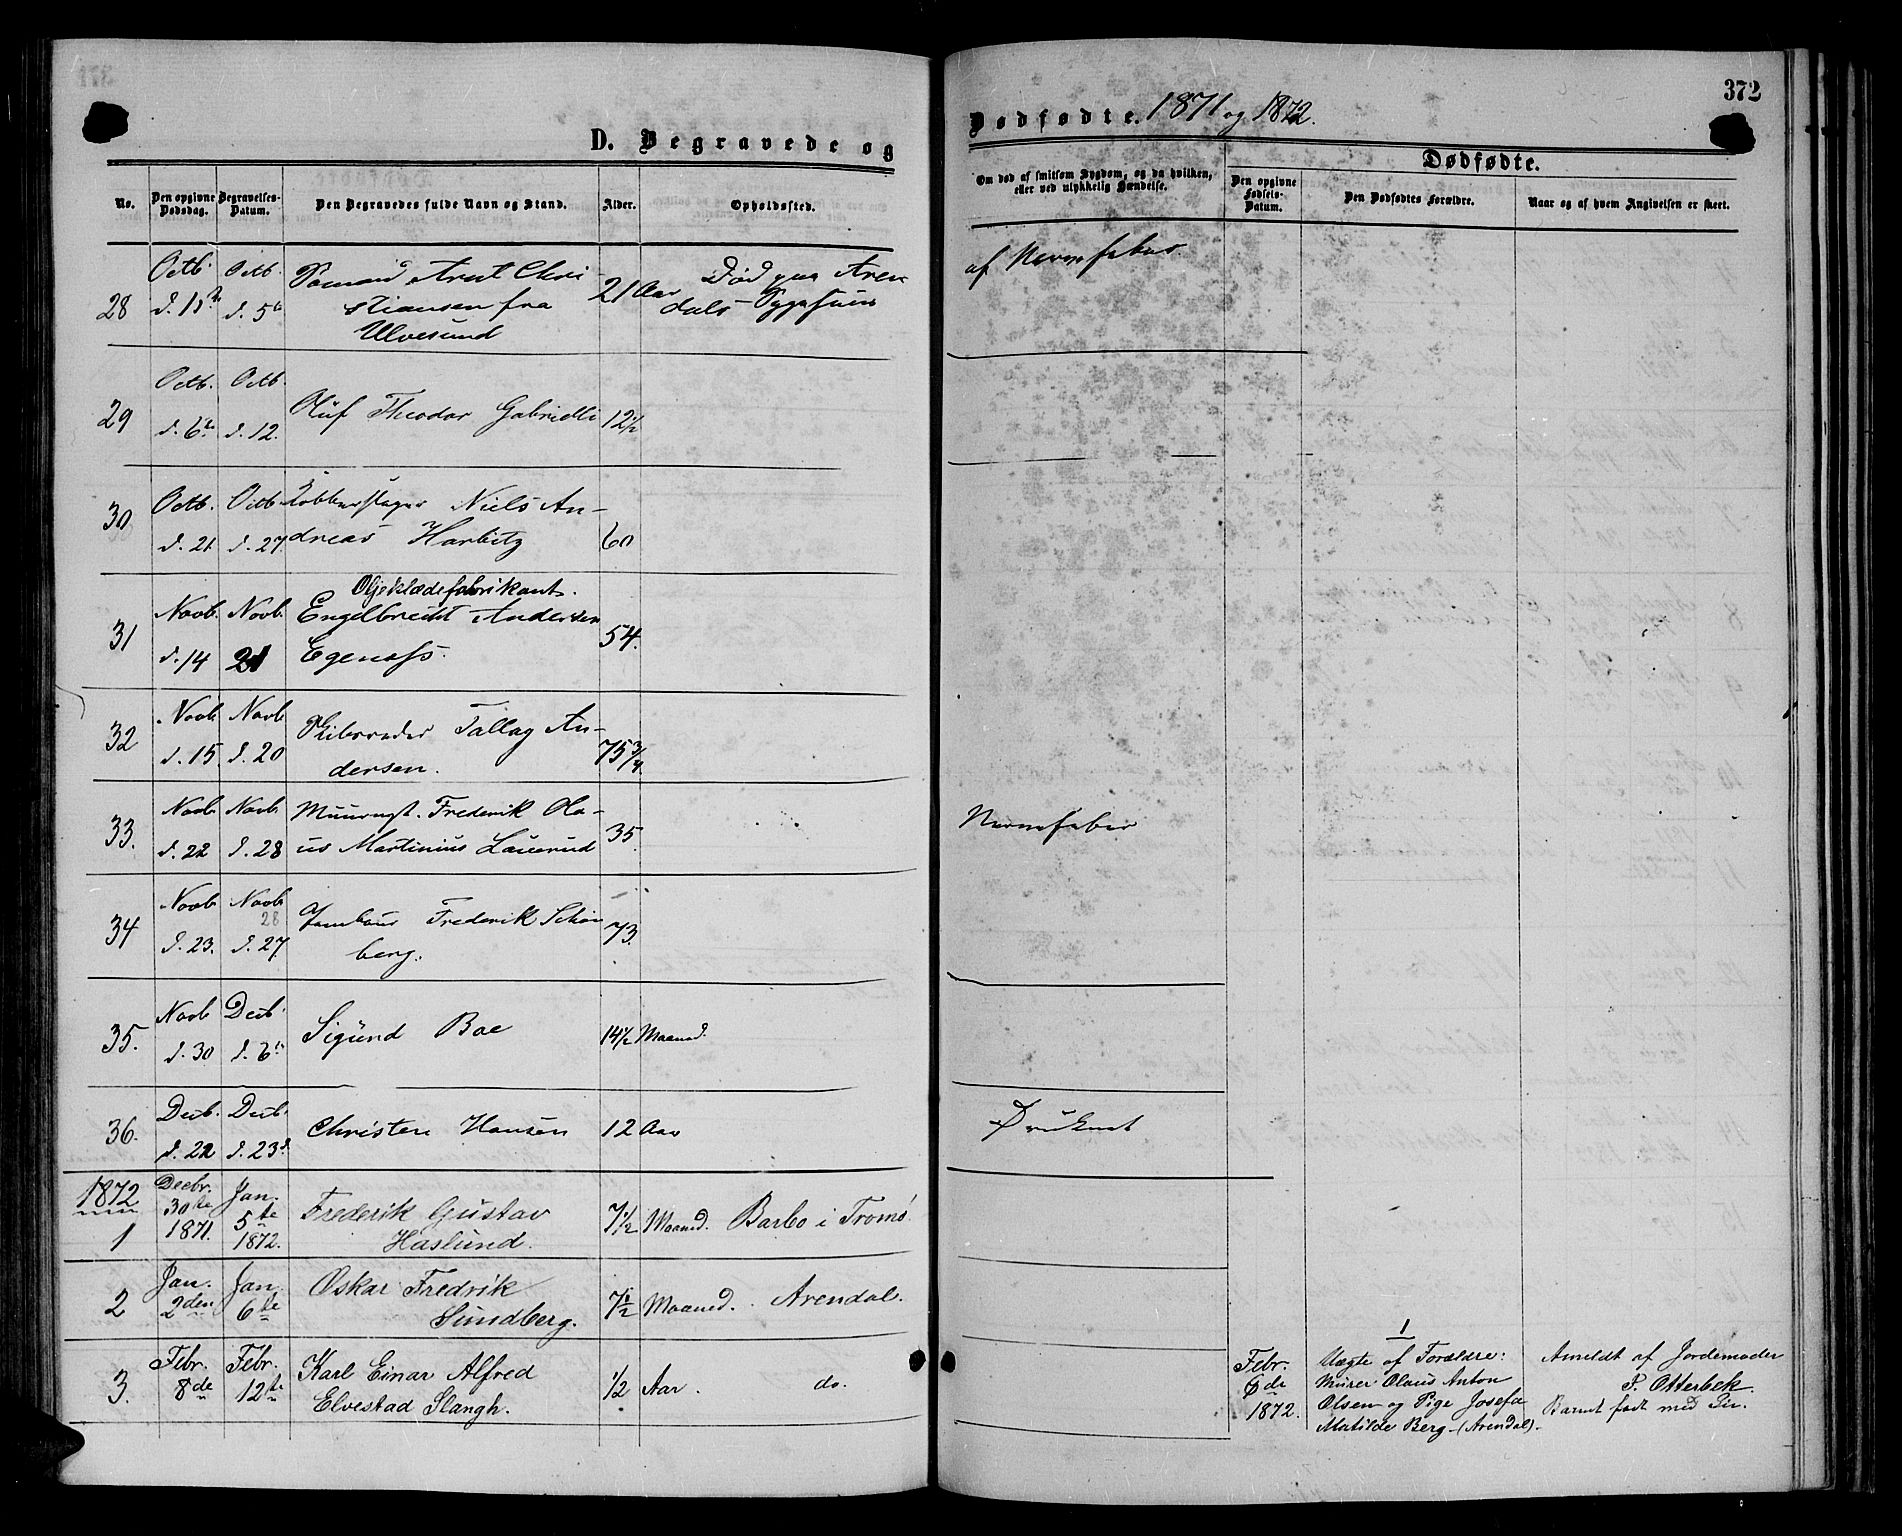 372
D. Begravede og
Dødfødte. 1871 og 1872.
No.
Den opgivne Dødsdag.
Begravelses-Datum.
Den Begravedes fulde Navn og Stand.
Alder.
Opholdssted.
Om død af smitsom Sygdom, og da hvilken,
eller ved ulykkelig Hændelse.
Dødfødte.
Den opgivne Fødsels-Datum.
Den Dødfødtes Forældre.
Naar og af hvem Angivelsen er skeet.
28 Octb. Octb. d. 5te
Arnt Chri
stiansen fra
Ulvesund
21 Aar
Død paa Aren
dals Sygehuus
af Nervefeber.
29 Octb. d. 6te Octb. d. 12. Oluf Theodor Gabrielli 12 1/2
30 Octb. d. 21 Octb. d. 27 Kobberslager Niels An-
dreas Harbitz 60
Oljeklædefabrikant.
31 Novb. d. 14 Novb. 21 Engelbrecht Andersen
Egenæss. 54.
32 Novb. d. 15 Novb. d. 20 Tallag An-
dersen. 75 3/4
33. Novb d. 22 Novb d. 28 Muurmgst. Frederik Ola-
us Martinius Lauerud 35.
Nervefeber
34 Novb d. 23. Novb 28 d. 27 Frederik Schøn
berg. 73.
35. Novb d. 30 Decb. d. 6te Sigünd Boe 14 1/2 Maaned.
36. Decb. d. 22 Decb. d. 23d Christen Hansen 12 Aar
Druknet
1872
1 Decbr. 30te 1871. Jan. 5te 1872. Frederik Gustav
Haslund. 7 1/2 Maaned. Barbo i Tromø.
2 Jan. 2den Jan. 6te Oskar Fredrik
Sundberg. 7 1/2 Maaned. Arendal.
3. Febr. 8de Febr. 12te Karl Einar Alfred
Elvestad Slangh. 1/2 Aar. do.
1
Febr. 6de 1872.
Uægte af Forældre:
Murer Olaus Anton
Olsen og Pige Josefa
Matilde Berg (Arendal).
Anmeldt af Jordemoder
P. Otterbek.
Barnet født med Liv.